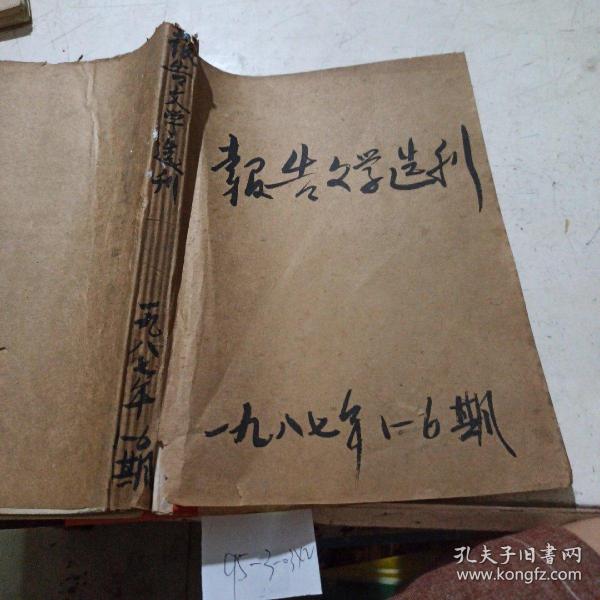 報告文学选刊
一九八七年1-6期
報告文学選刊
一九八七年
1-6期
孔夫子旧书网
www.kongfz.com